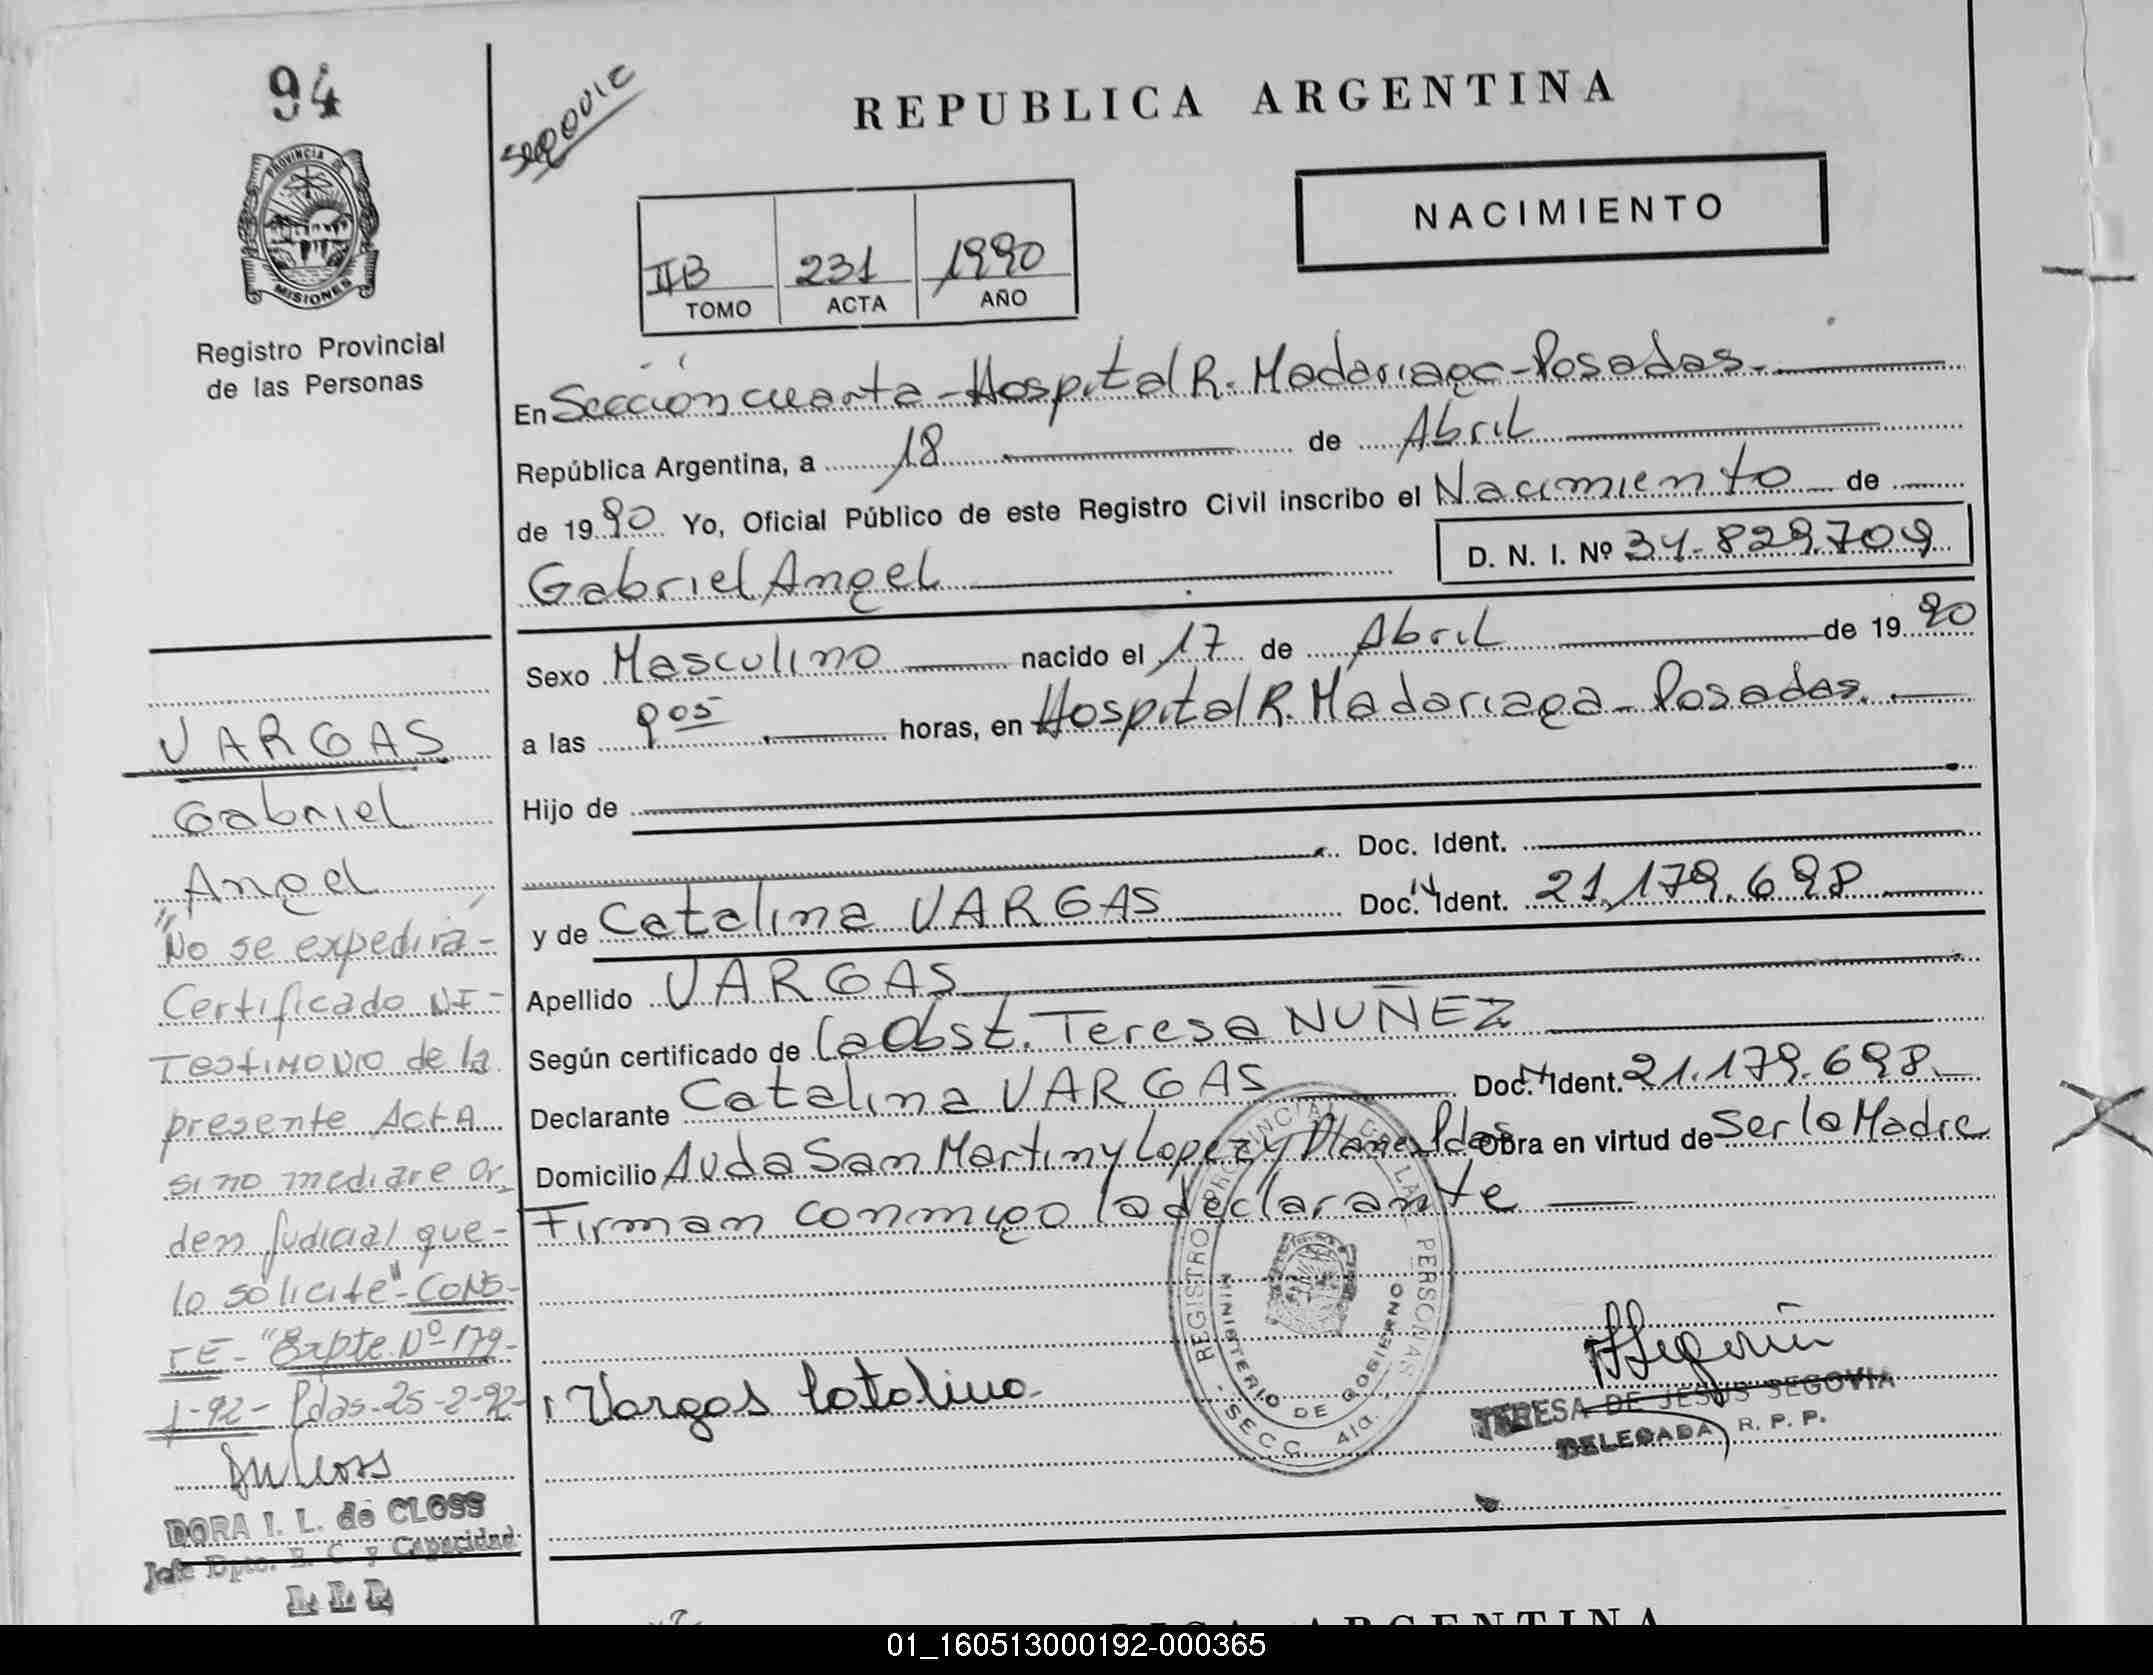 94
PROVINCIA DE
MISIONES
Registro Provincial
de las Personas
Segovia
REPUBLICA ARGENTINA
NACIMIENTO
IIB 231 1990
TOMO ACTA AÑO
En Sección cuarta - Hospital R. Madariaga - Posadas.
República Argentina, a 18 de Abril
de 1990 Yo, Oficial Público de este Registro Civil inscribo el Nacimiento de
Gabriel Angel D. N. I. Nº 34.829.709
Sexo Masculino nacido el 17 de Abril de 1990
a las 9 05 horas, en Hospital R. Madariaga - Posadas.
Hijo de
Doc. Ident.
y de Catalina VARGAS Doc. N Ident. 21.179.698
Apellido VARGAS
Según certificado de la Obst. Teresa NUÑEZ
Declarante Catalina VARGAS Doc. N Ident. 21.179.698.
Domicilio Avda San Martin y Lopez y Planes Pdas Obra en virtud de Ser la Madre
Firman conmigo la declarante
Vargas Catalina
REGISTRO PROVINCIAL DE LAS PERSONAS
MINISTERIO DE GOBIERNO
SECC. 4ta.
TERESA DE JESUS SEGOVIA
DELEGADA R. P. P.
VARGAS
Gabriel
Angel
"No se expedirá-
Certificado NI-
Testimonio de la
presente Acta
si no mediare or-
den Judicial que-
lo solicite"- CONS-
TE- "Expte. Nº 179-
1-92- Pdas-25-2-92-
DORA I. L. de CLOSS
Jefe Dpto. E. C. y Capacidad
ARGENTINA
01_160513000192-000365